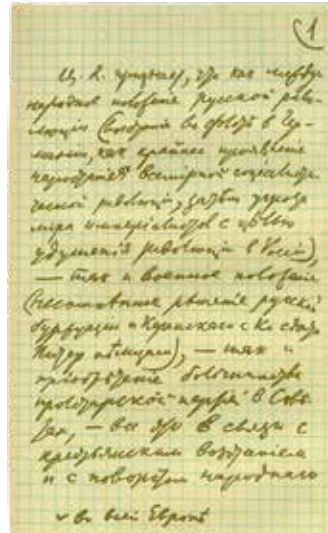 (1
Ц. К. признает, что как между-
народное положение русской рево-
люции (восстание во флоте в Гер-
мании, как крайнее проявление
нарастания ˅ всемирной социалисти-
ческой революции, затем угроза
мира империалистов с целью
удушения революции в России),
— так и военное положение
(несомненное решение русской
буржуазии и Керенского с Ко сдать
Питер немцам), — так и
приобретение большинства
пролетарской партией в Сове-
тах, — все это в связи с
крестьянским восстанием
и с поворотом народного
˅ во всей Европе